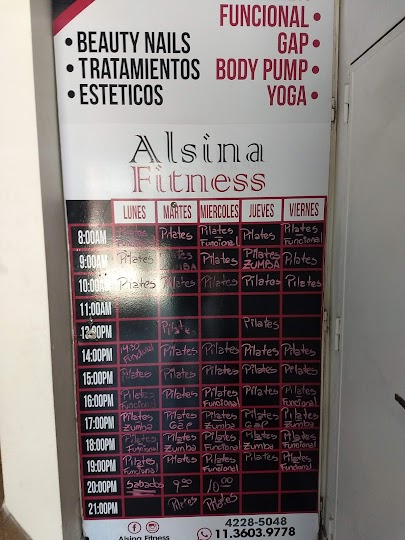 FUNCIONAL •
• BEAUTY NAILS GAP •
• TRATAMIENTOS BODY PUMP •
• ESTETICOS YOGA •
Alsina
Fitness
LUNES MARTES MIERCOLES JUEVES VIERNES
8:00AM Pilates Pilates Pilates Funcional Pilates Pilates Funcional
9:00AM Pilates ZUMBA Pilates Pilates ZUMBA Pilates
10:00AM Pilates Pilates Pilates Pilates Pilates
11:00AM
Pilates Pilates
14:00PM 14:30 Funcional Pilates Pilates Pilates Pilates
15:00PM Pilates Pilates Pilates Pilates Pilates
16:00PM Pilates Funcional Pilates Pilates Funcional Pilates Pilates Funcional
17:00PM Pilates Zumba Pilates Gap Pilates Zumba Pilates Gap Pilates Zumba
18:00PM Pilates Funcional Pilates Zumba Pilates Zumba Pilates Zumba Pilates Zumba
19:00PM Pilates Funcional Pilates Pilates Funcional Pilates Pilates Funcional
20:00PM Sabados 9:00 10:00
21:00PM Pilates Pilates
4228-5048
Alsina Fitness 11.3603.9778